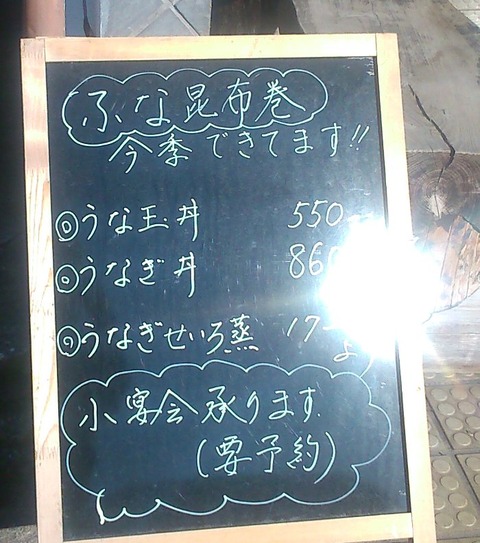 ふな昆布巻
今季できてます!!
◎うな玉丼 550
◎うなぎ丼 860
◎うなぎせいろ蒸 17
より
小宴会承ります
(要予約)